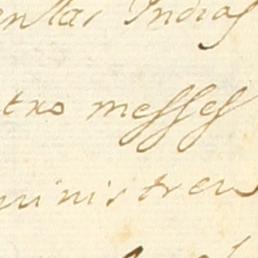 entlas Indias
tro messes
ministren